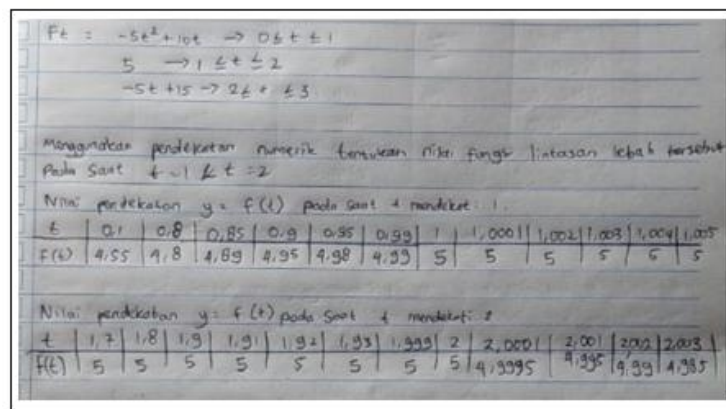 Ft = -5t² + 10t → 0 ≤ t ≤ 1
5 → 1 ≤ t ≤ 2
-5t + 15 → 2 ≤ t ≤ 3
Menggunakan pendekatan numerik tentukan nilai fungsi lintasan lebah tersebut
Pada saat t = 1 & t = 2
Nilai pendekatan y = f(t) pada saat t mendekati 1.
t | 0,1 | 0,8 | 0,85 | 0,9 | 0,95 | 0,99 | 1 | 1,0001 | 1,002 | 1,003 | 1,004 | 1,005
f(t) | 4,55 | 4,8 | 4,89 | 4,95 | 4,98 | 4,99 | 5 | 5 | 5 | 5 | 5 | 5
Nilai pendekatan y = f(t) pada saat t mendekati 2
t | 1,7 | 1,8 | 1,9 | 1,91 | 1,92 | 1,93 | 1,999 | 2 | 2,0001 | 2,001 | 2,002 | 2,003
f(t) | 5 | 5 | 5 | 5 | 5 | 5 | 5 | 5 | 4,9995 | 4,995 | 4,99 | 4,985